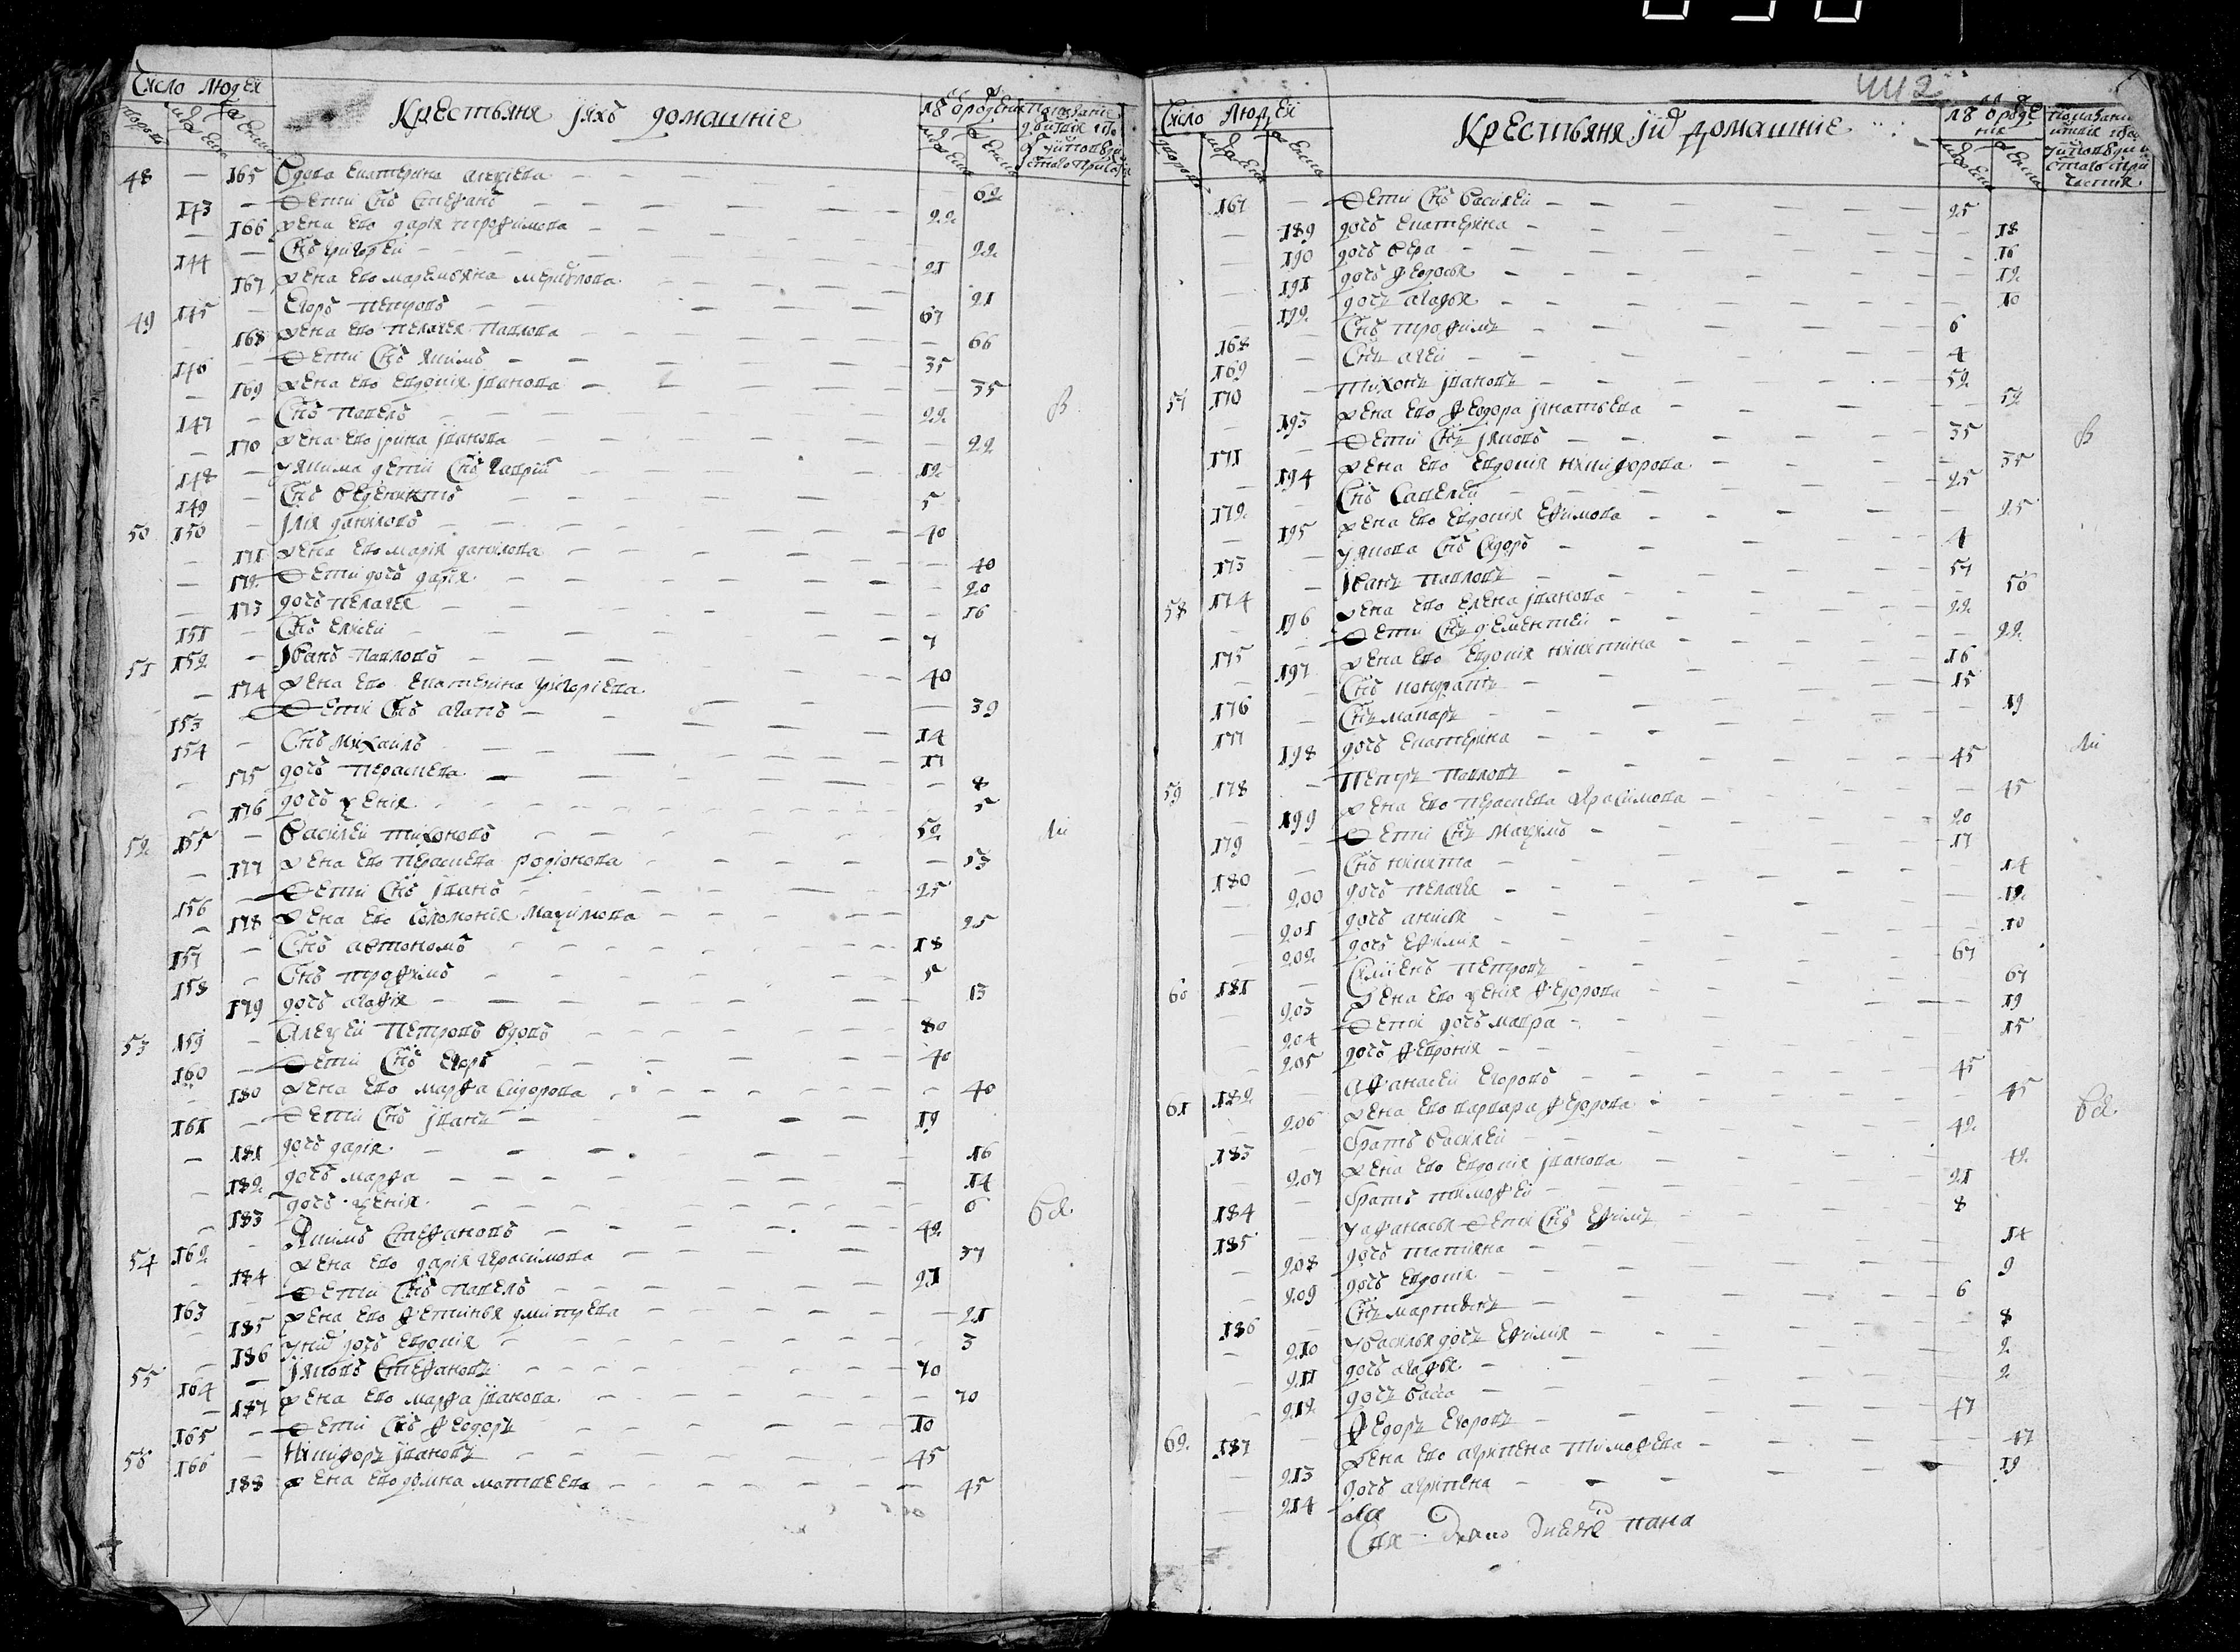 Число людеи
дворовъ
мужеска
женска
Крестьяня ихъ домашние
48 165 Вдова Екатерина Андреева 62
143 Дети Снъ Стефанъ 22
166 Жена Ево Дария Трофимова 22
144 Снъ Григореи 21
167 Жена Ево Маремьяна 21
49 145 Егоръ Петровъ 67
168 Жена Ево Пелагея Павлова 66
146 Дети Снъ Якимъ 35
169 Жена Ево Евдокия Иванова 35
147 Снъ Павелъ 22
170 Жена Ево Ирина Иванова 22
148 У Якима дети Снъ Гаврил 12
149 Снъ Веденихтъ 5
50 150 Илия Даниловъ 40
171 Жена Ево Мария Данилова 40
172 Дети дочь Дария 20
173 дочь Пелагея 16
151 Снъ Елисеи 7
51 152 Иванъ Павловъ 40
174 Жена Ево Екатерина Григориева 39
153 Дети Снъ Агапъ 14
154 Снъ Михаилъ 11
175 дочь Парасковья 8
176 дочь Ксения 5
52 155 Василеи Тихоновъ 52
177 Жена Ево Парасковья Родионова 53
156 Дети Снъ Иванъ 25
178 Жена Ево Соломония Максимова 25
157 Снъ Автономъ 18
158 Снъ Трофимъ 5
179 дочь Агафия 13
53 159 Алексеи Петровъ вдовъ 80
160 Дети Снъ Егоръ 40
180 Жена Ево Марфа Сидорова 40
161 Дети Снъ Иванъ 19
181 дочь Дария 16
182 дочь Марфа 14
183 дочь Ксения 6
54 162 Якимъ Стефановъ 42
184 Жена Ево Дария Герасимова 37
163 Дети Снъ Павелъ 21
185 Жена Ево Фетинья Дмитрева 21
186 У них дочь Евдокия 3
55 164 Яковъ Стефановъ 70
187 Жена Ево Марфа Иванова 70
165 Дети Снъ Феодоръ 10
56 166 Никифоръ Ивановъ 45
188 Жена Ево Домна Матвеева 45
442
Число людеи
дворовъ
мужеска
женска
Крестьяня их домашние
167 Дети Снъ Василеи 25
189 дочь Екатерина 18
190 дочь Вера 16
191 дочь Федосья 12
192 дочь Агафья 10
168 Снъ Трофимъ 6
169 Снъ Агеи 4
57 170 Тихонъ Ивановъ 52
193 Жена Ево Феодора Игнатьева 52
171 Дети Снъ Яковъ 35
194 Жена Ево Евдокия Никифорова 35
172 Снъ Савелеи 25
195 Жена Ево Евдокия Ефимова 25
173 У Якова Снъ Сидоръ 4
58 174 Иванъ Павловъ 57
196 Жена Ево Елена Иванова 56
175 Дети Снъ Дементеи 22
197 Жена Ево Евдокия Никитина 22
176 Снъ Кондратъ 16
177 Снъ Макаръ 15
198 дочь Екатерина 19
59 178 Петръ Павловъ 45
199 Жена Ево Парасковья Герасимова 45
179 Дети Снъ Максимъ 20
180 Снъ Никита 17
200 дочь Пелагея 14
201 дочь Анисья 12
202 дочь Ефимия 10
60 181 Петровъ 67
203 Жена Ево Ксения Федорова 67
204 Дети дочь Мавра 19
205 дочь Феврония 15
61 182 Афанасеи Егоровъ 45
206 Жена Ево Варвара Федорова 45
183 Братъ Василеи 42
207 Жена Ево Евдокия Иванова 42
184 Братъ Тимофеи 21
185 У Афанасья дети Снъ Ефимъ 8
208 дочь Татияна 14
209 дочь Евдокия 9
186 Снъ Мартинъ 6
210 У Василья дочь Ефимия 8
211 дочь Агафья 2
212 дочь Васса 2
62 187 Федоръ Егоровъ 47
213 Жена Ево Агрипена Тимофеева 47
214 дочь Агрипена 19